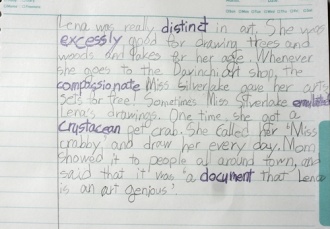 Lena was really distinct in art. She was
excessly good for drawing trees and
woods and lakes for her age. Whenever
she goes to the Davinchi art shop, the
compassionate Miss Silverlake gave her art
sets for free! Sometimes Miss Silverlake
Lena's drawings. One time, she got a
crustacean pet crab. She called her "Miss
crabby, and draw her every day. Mom
showed it to people all around town, and
said that it was "a document that Lena
is an art genious".